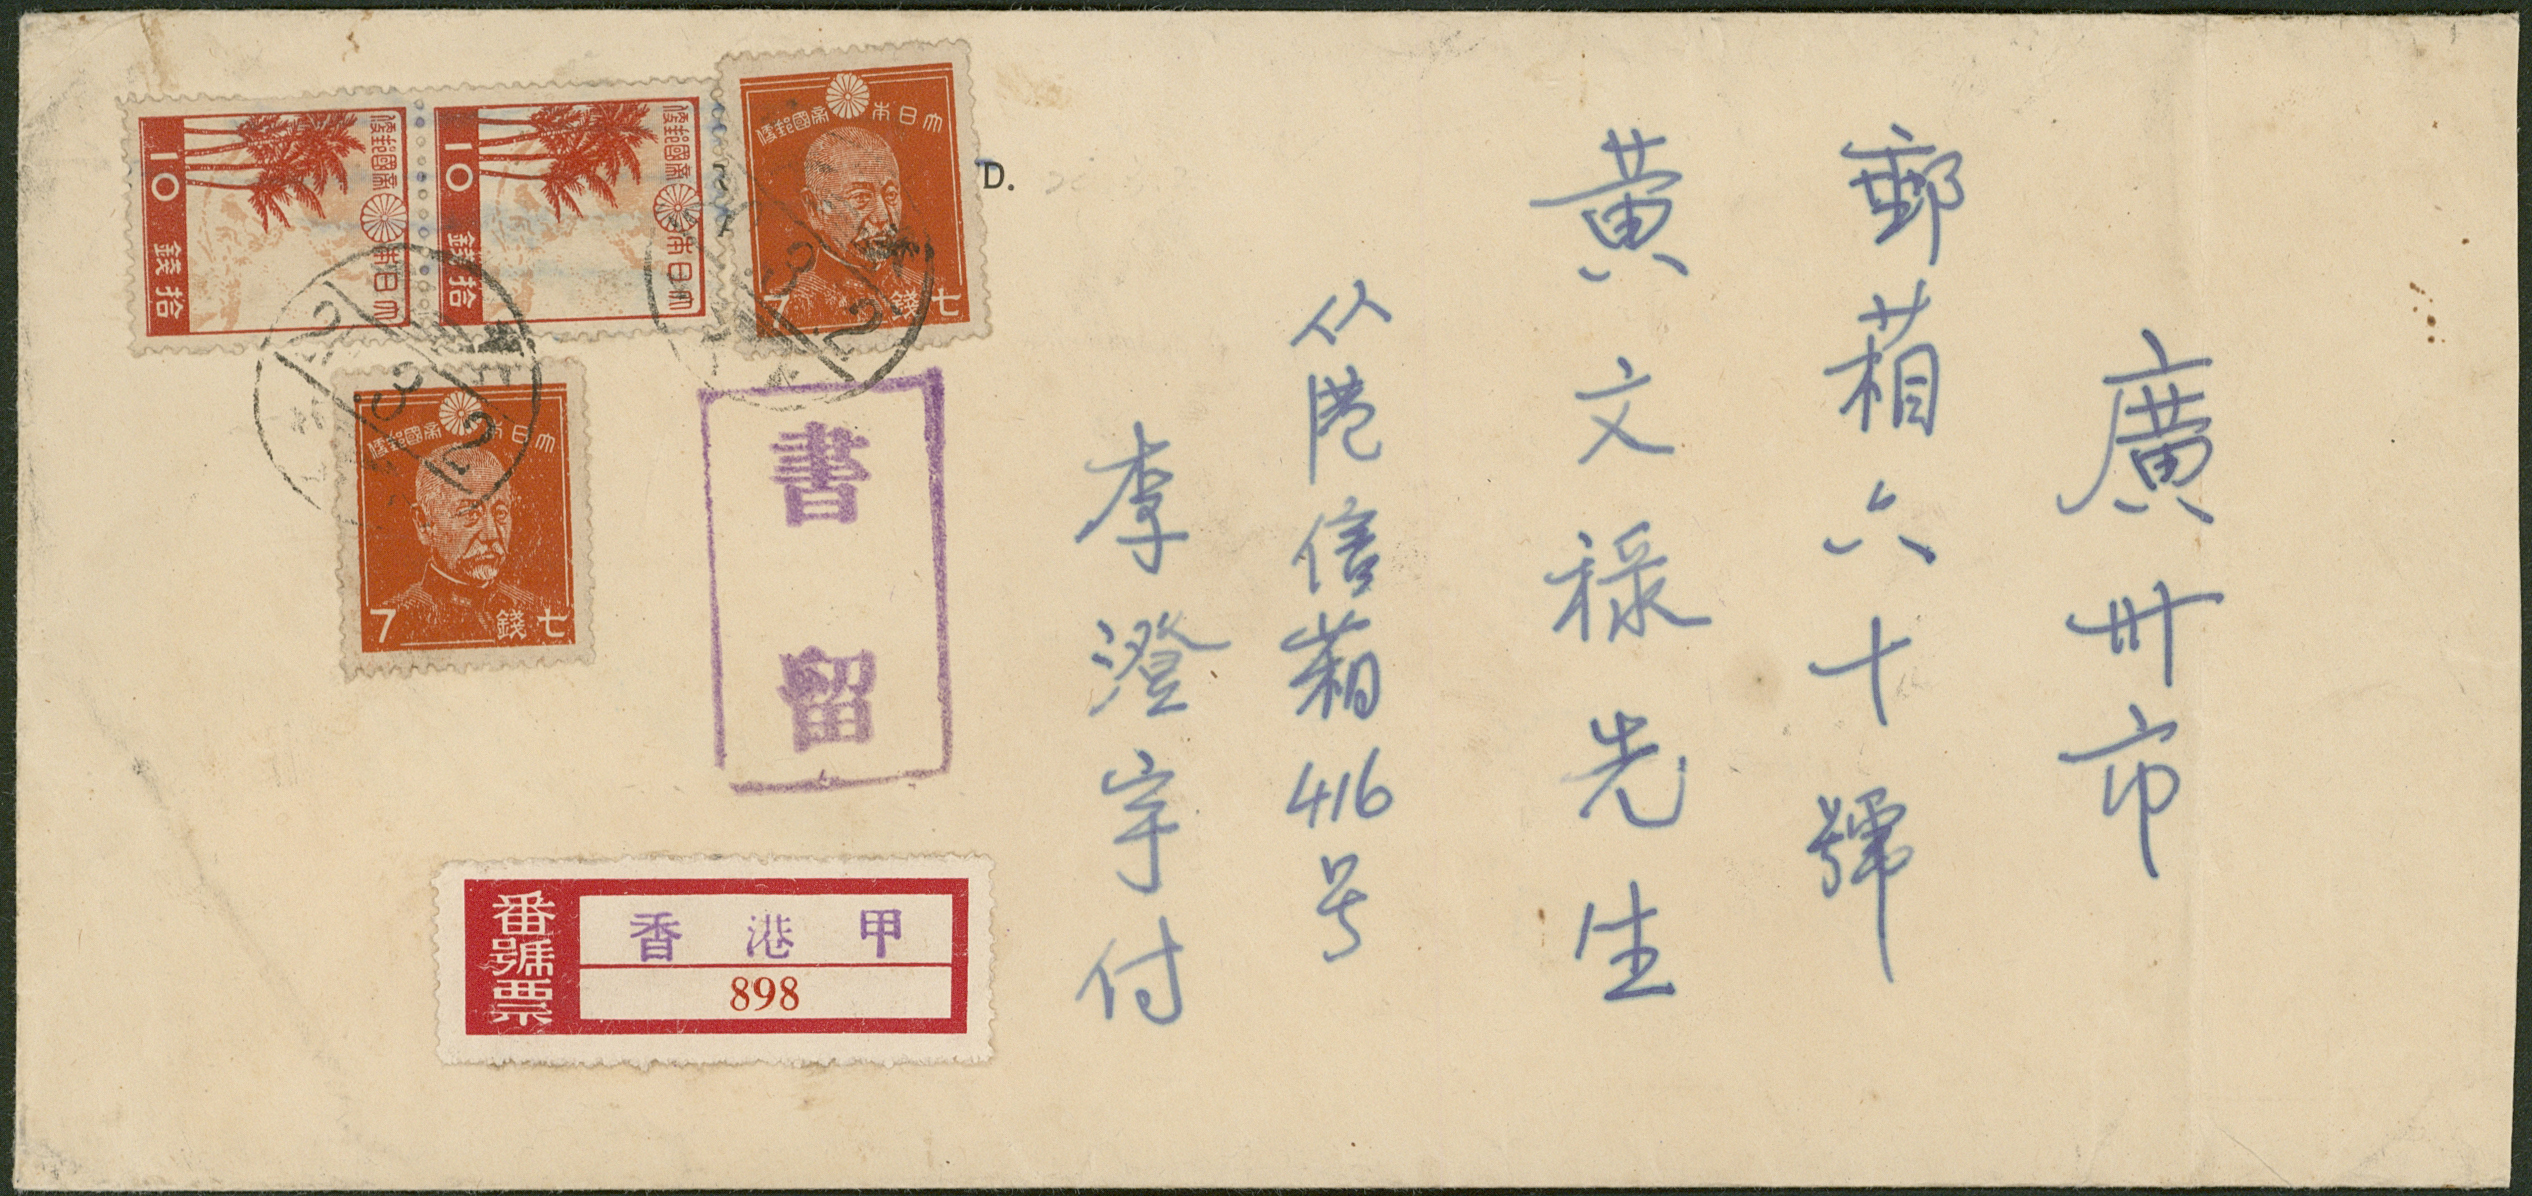 廣州市
郵葙六十號
黃文祿先生
从港信葙416号
李澄宇付
D.
大日本帝國郵便
7 七錢
大日本帝國郵便
10 拾錢
大日本帝國郵便
10 拾錢
大日本帝國郵便
7 七錢
書留
番號票
香港甲
898